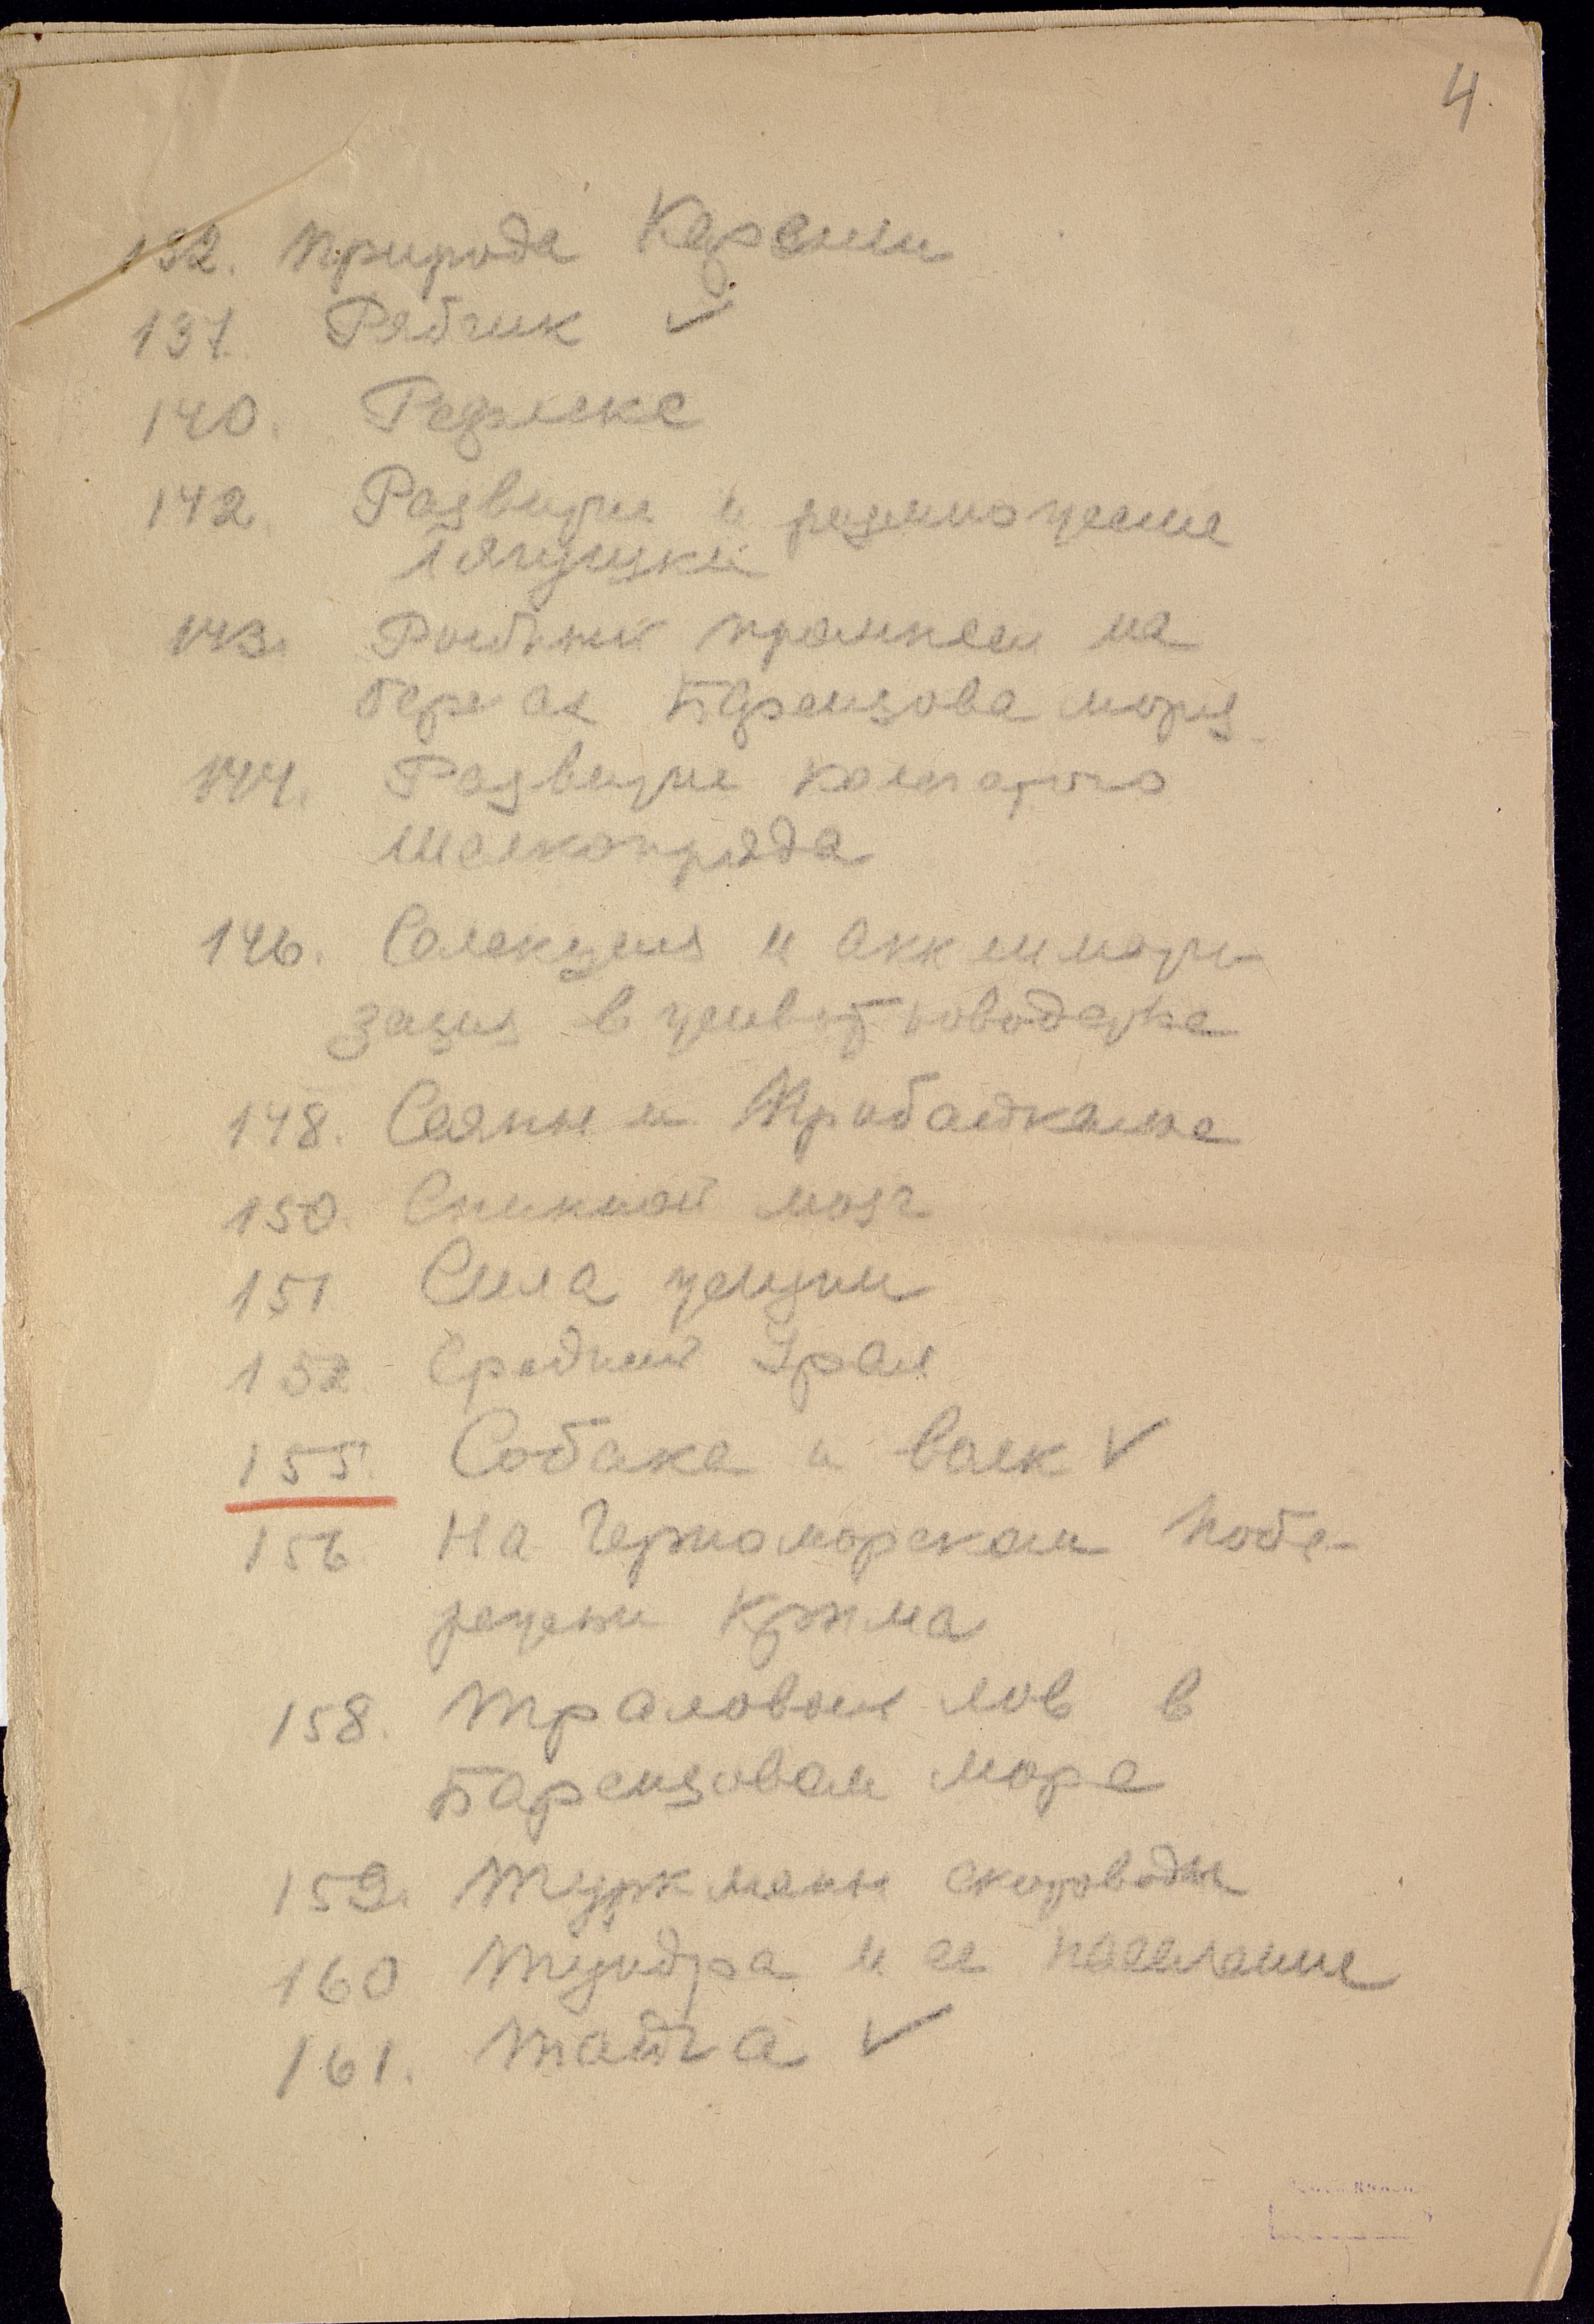 4.
132. Природа Карелии
137. Рябчик ✓
140. Редиска
142. Развитие и размножение
Лягушки
143. Рыбный промысел на
берегах Баренцова моря
144. Развитие кольчатого
шелкопряда
146. Селекция и акклимати-
зация в животноводстве
148. Саяны и Прибайкалье
150. Спинной мозг
151 Сила жизни
152 Средний Урал
155. Собака и волк ✓
156 На Черноморском побе-
режьи Крыма
158. Траловый лов в
Баренцовом море
159. Туркмены скотоводы
160 Тундра и ее население
161. Тайга ✓